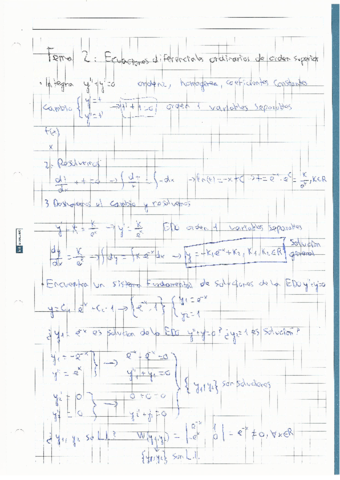 Tema 2: Ecuaciones diferenciales ordinarias de orden superior
• Integra y''+y'=0 orden 2, homogénea, coeficientes constantes
cambio { y'=t y''=t' → t'+t=0 orden 1 variables separables
t(x)
x
2. Resolvemos
dt/dx + t = 0 → ∫dt/t = ∫-dx → ln(t) = -x+C → t = e^-x · e^C = K/e^x, K∈R
3 Deshacemos el cambio y resolvemos
y' = t = K/e^x → y' = K/e^x EDO orden 1 variables separables
dy/dx = K/e^x → ∫dy = ∫K·e^-x dx → y = -K₁e^-x + K₂, K₁,K₂∈R solución general
• Encuentra un sistema fundamental de soluciones de la EDO y''+y'=0
y = C₁·e^-x + C₂·1 → {e^-x, 1} { y₁=e^-x y₂=1
¿y₁=e^-x es solución de la EDO y''+y'=0? ¿y₂=1 es solución?
y₁'=-e^-x
y₁''=e^-x } → e^-x - e^-x = 0
y₁''+y₁'=0
{y₁,y₂} son soluciones
y₂'=0
y₂''=0 } → 0+0=0
y₂''+y₂'=0
¿y₁, y₂ son L.I.? W(y₁,y₂) = | e^-x 1 -e^-x 0 | = e^-x ≠ 0, ∀x∈R
{y₁,y₂} son L.I.